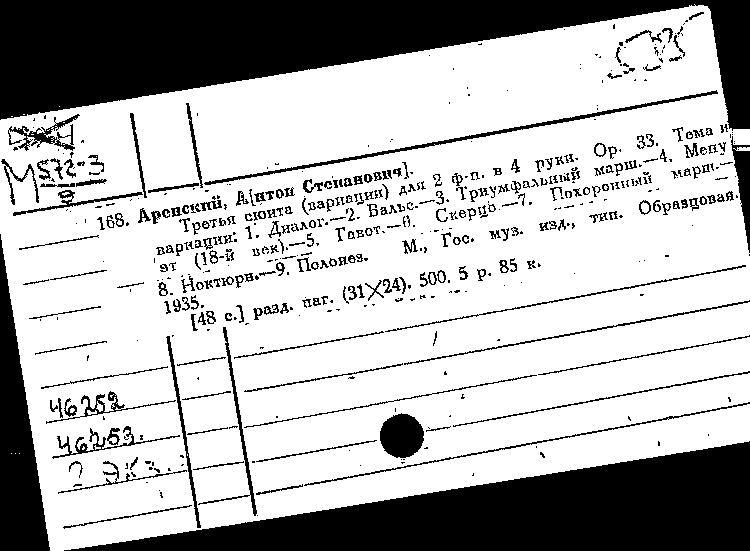 М 572-3
8
168. Аренский, А[нтон Степанович].
Третья сюита (вариации) для 2 ф-п. в 4 руки. Ор. 33. Тема и
вариации: 1. Диалог.—2. Вальс.—3. Триумфальный марш.—4. Мену
эт (18-й век).—5. Гавот.—6. Скерцо.—7. Похоронный марш.—
8. Ноктюрн.—9. Полонез. М., Гос. муз. изд., тип. Образцовая.
1935.
[48 с.] разд. паг. (31×24). 500. 5 р. 85 к.
46252
46253.
2 экз.